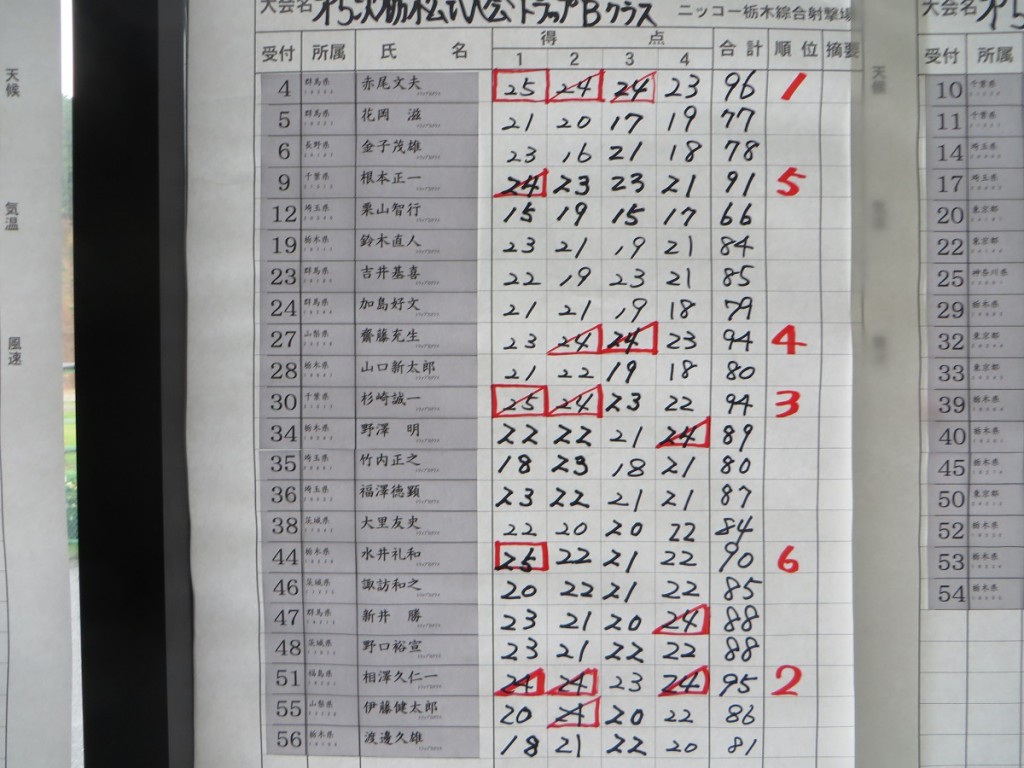 大会名 トラップBクラス ニッコー栃木綜合射撃場
受付 所属 氏 名 得 点 合計 順位 摘要
1 2 3 4
4 群馬県 赤尾文夫 25 24 24 23 96 1
5 群馬県 花岡 滋 21 20 17 19 77
6 長野県 金子茂雄 23 16 21 18 78
9 千葉県 根本正一 24 23 23 21 91 5
12 埼玉県 栗山智行 15 19 15 17 66
19 栃木県 鈴木直人 23 21 19 21 84
23 群馬県 吉井基喜 22 19 23 21 85
24 群馬県 加島好文 21 21 19 18 79
27 山梨県 齋藤充生 23 24 24 23 94 4
28 山口新太郎 21 22 19 18 80
30 千葉県 杉崎誠一 25 24 23 22 94 3
34 栃木県 野澤 明 22 22 21 24 89
35 埼玉県 竹内正之 18 23 18 21 80
36 埼玉県 福澤徳顕 23 22 21 21 87
38 茨城県 大里友史 22 20 20 22 84
44 栃木県 水井礼和 25 22 21 22 90 6
46 茨城県 諏訪和之 20 22 21 22 85
47 群馬県 新井 勝 23 21 20 24 88
48 茨城県 野口裕宣 23 21 22 22 88
51 福島県 相澤久仁一 24 24 23 24 95 2
55 山梨県 伊藤健太郎 20 24 20 22 86
56 栃木県 渡邊久雄 18 21 22 20 81
天候
気温
風速
天候
大会名
受付 所属
10 千葉県
11 千葉県
14 埼玉県
17 埼玉県
20 東京都
22 東京都
25 神奈川県
29 栃木県
32 東京都
33 東京都
39 栃木県
40 栃木県
45 栃木県
50 東京都
52 栃木県
53 栃木県
54 栃木県